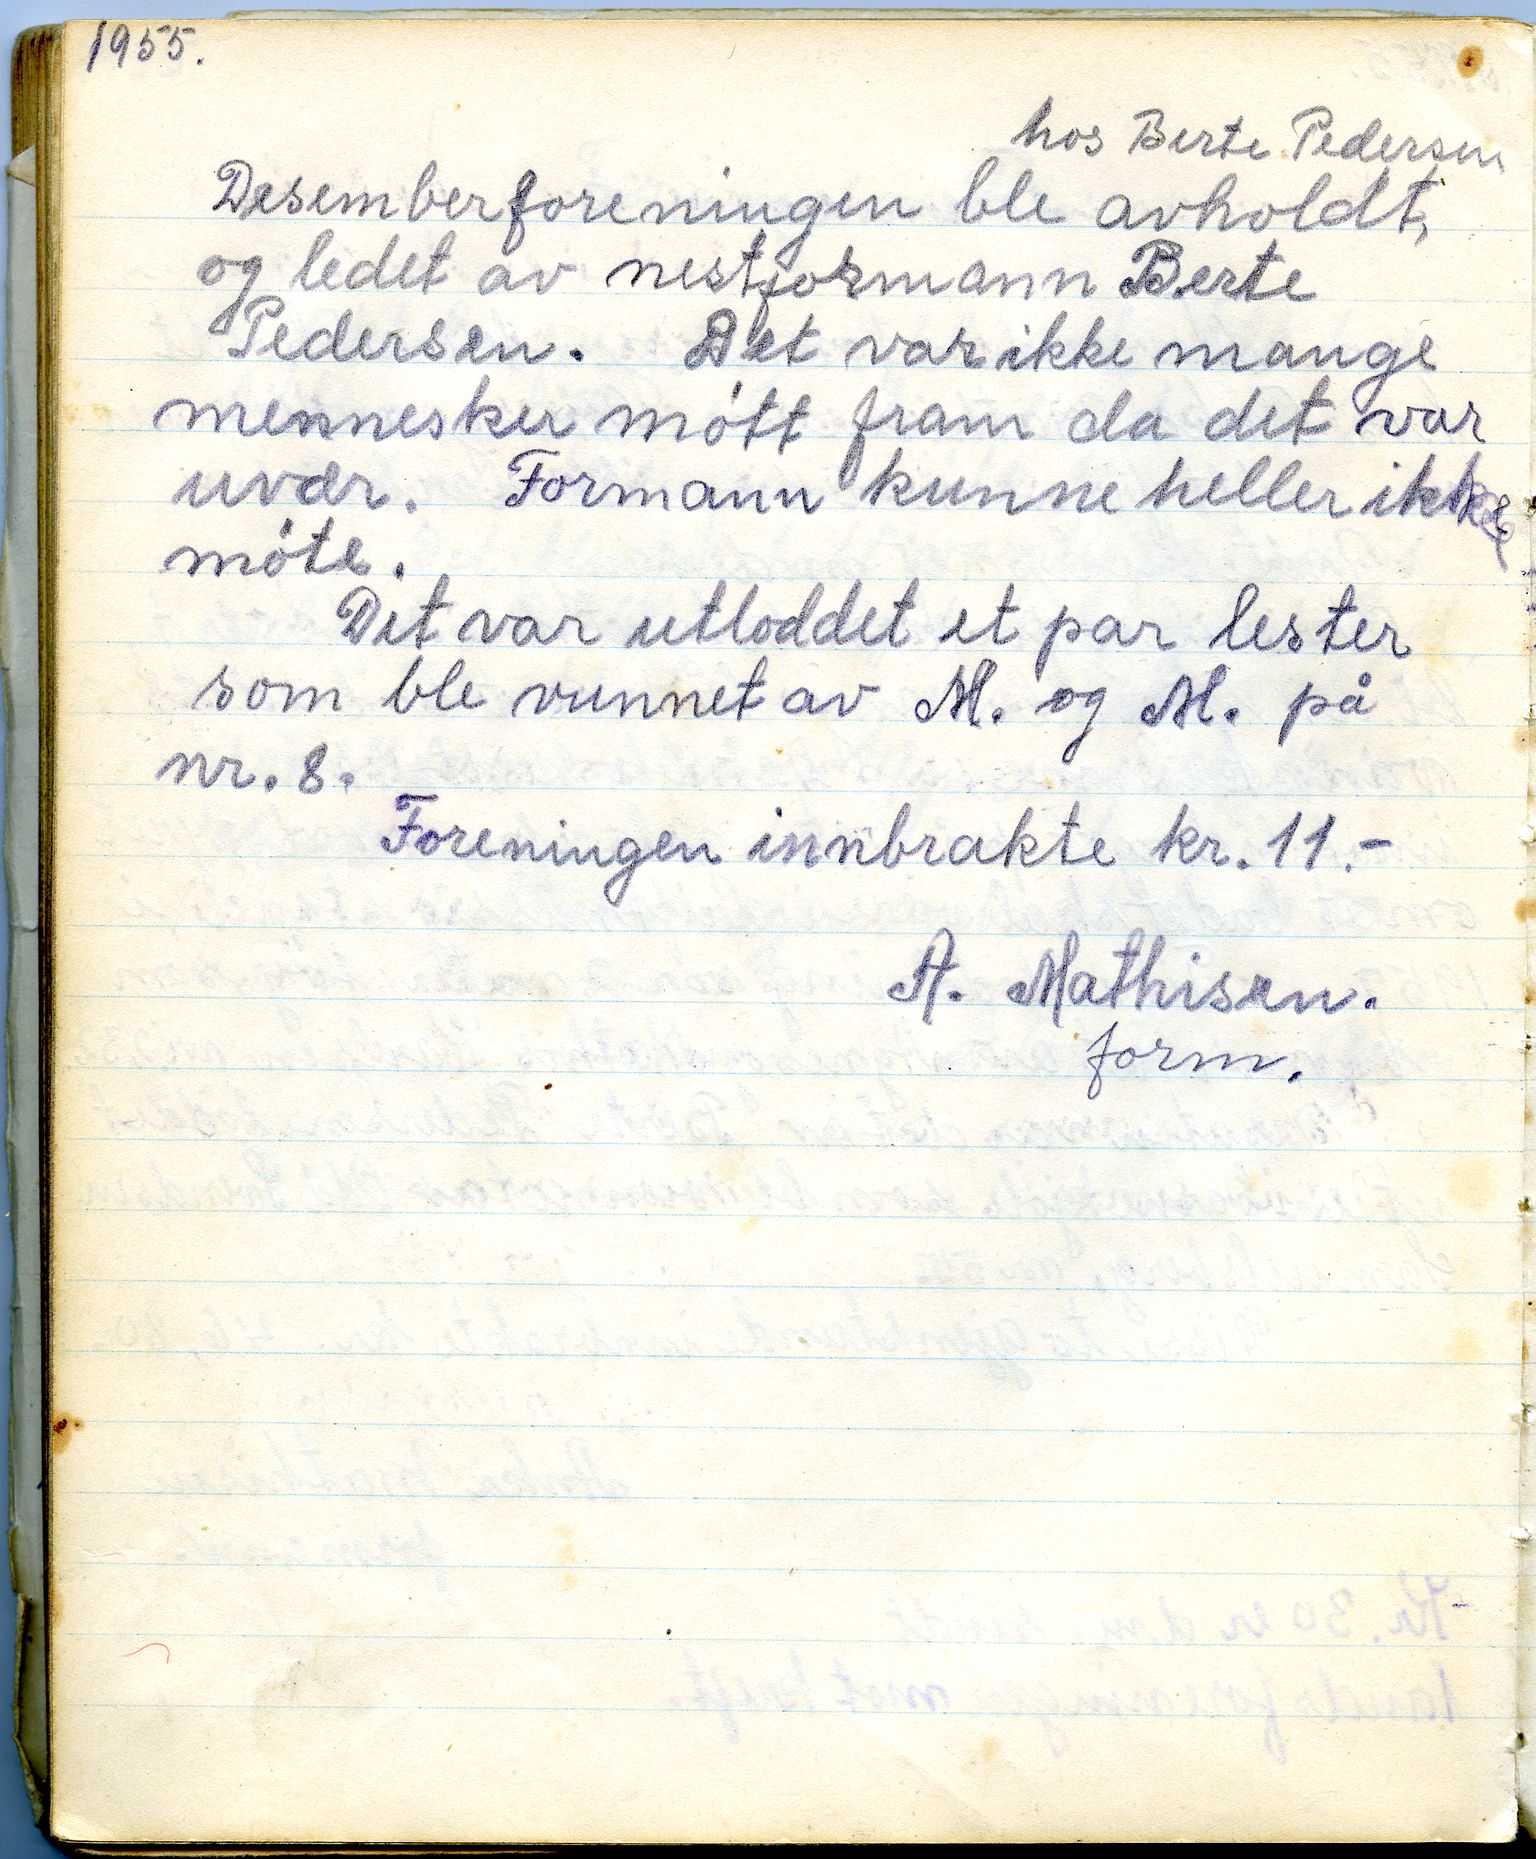 1955.
hos Berte Pedersen
Desemberforeningen ble avholdt,
og ledet av nestformann Berte
Pedersen. Det var ikke mange
mennesker møtt fram da det var
uvær. Formann kunne heller ikke
møte.
Det var utloddet et par lester
som ble vunnet av M. og M. på
nr. 8.
Foreningen innbrakte kr. 11.-
A. Mathisen.
form.